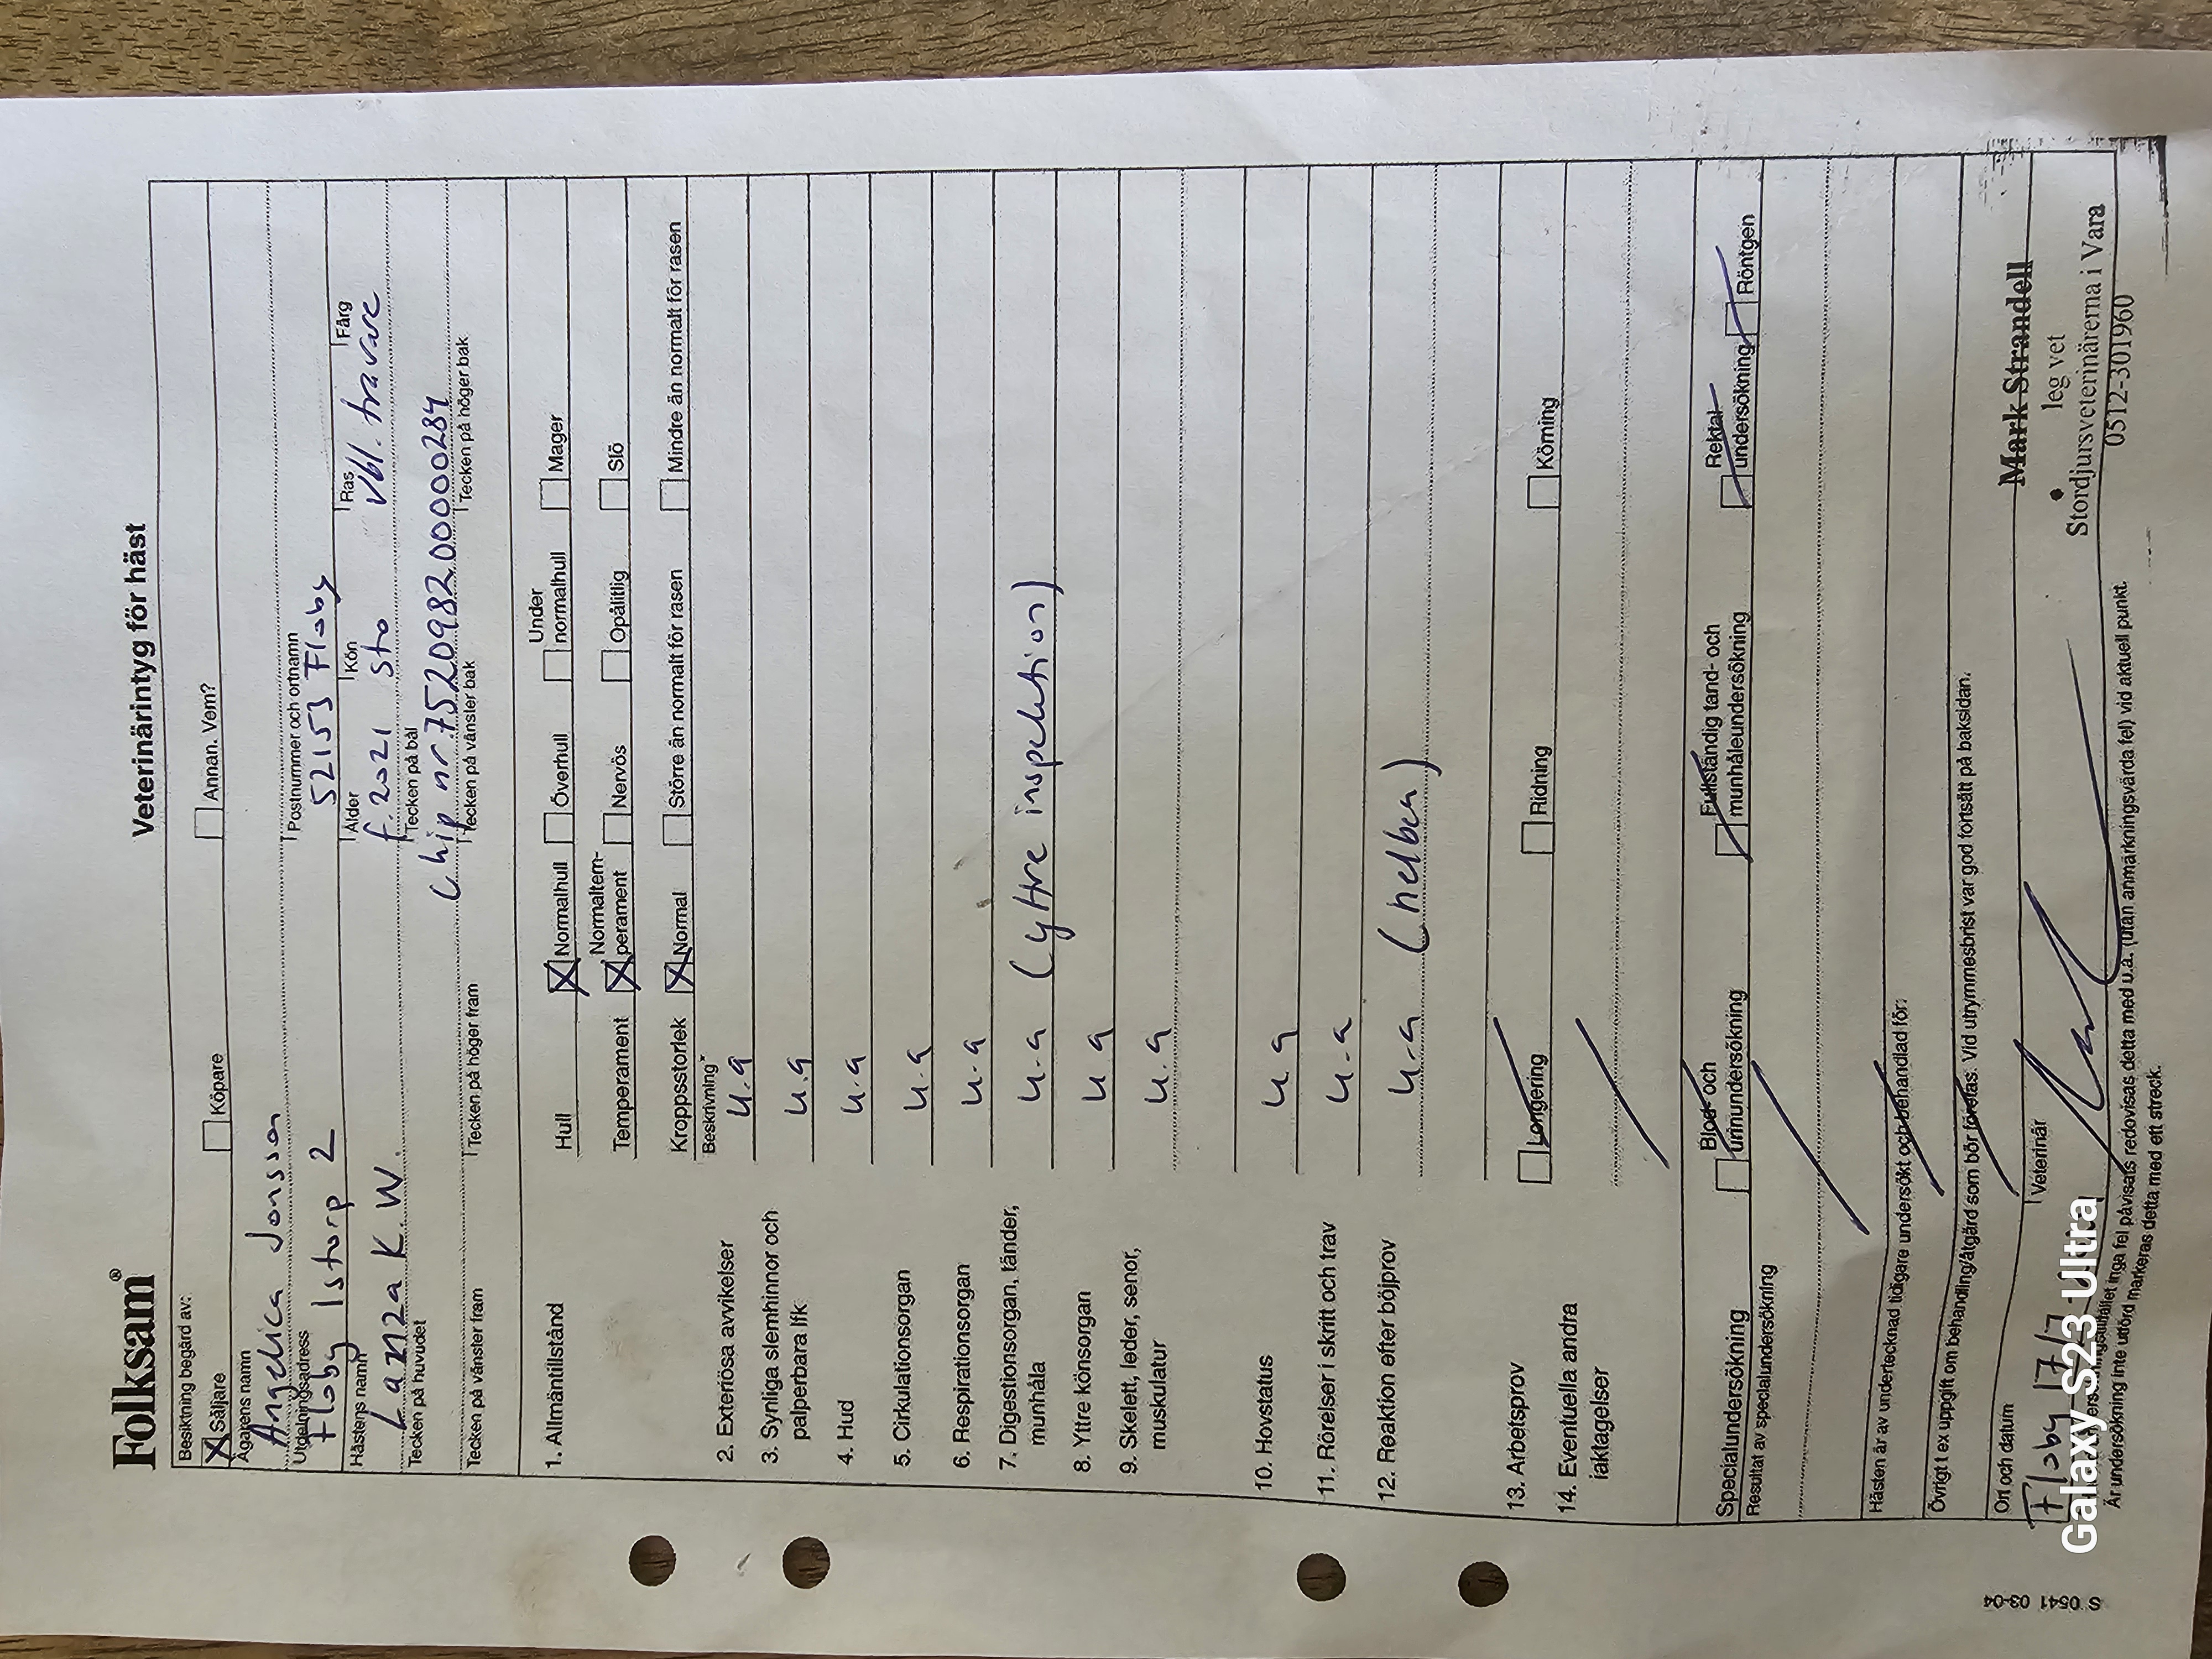 Folksam®
Veterinärintyg för häst
Besiktning begärd av:
X Säljare Köpare Annan. Vem?
Ägarens namn
Angelica Jonsson
Utdelningsadress Postnummer och ortnamn
Floby Istorp 2 52153 Floby
Hästens namn Ålder Kön Ras Färg
Lanza K.W. f. 2021 sto Vbl. travare
Tecken på huvudet Tecken på bål
Chip nr 752098200000284
Tecken på vänster fram Tecken på höger fram Tecken på vänster bak Tecken på höger bak
1. Allmäntillstånd Hull X Normalhull Överhull Under normalhull Mager
Temperament X Normaltem-perament Nervös Opålitlig Slö
Kroppsstorlek X Normal Större än normalt för rasen Mindre än normalt för rasen
Beskrivning*
2. Exteriösa avvikelser u.a
3. Synliga slemhinnor och u.a
palperbara lfk
4. Hud u.a
5. Cirkulationsorgan u.a
6. Respirationsorgan u.a
7. Digestionsorgan, tänder, u.a (yttre inspektion)
munhåla
8. Yttre könsorgan u.a
9. Skelett, leder, senor, u.a
muskulatur
10. Hovstatus u.a
11. Rörelser i skritt och trav u.a
12. Reaktion efter böjprov u.a (helben)
13. Arbetsprov Longering Ridning Körning
14. Eventuella andra
iaktagelser
Specialundersökning Blod- och urinundersökning Fullständig tand- och munhåleundersökning Rektal undersökning Röntgen
Resultat av specialundersökning
Hästen är av undertecknad tidigare undersökt och behandlad för:
Övrigt t ex uppgift om behandling/åtgärd som bör förelas. Vid utrymmesbrist var god fortsätt på baksidan.
Ort och datum Veterinär
Floby 17/7
Mark Strandell
leg vet
Stordjursveterinärerna i Vara
0512-301960
inga fel påvisats redovisas detta med u.a. (utan anmärkningsvärda fel) vid aktuell punkt.
Är undersökning inte utförd markeras detta med ett streck.
S 0541 03-04
Galaxy S23 Ultra